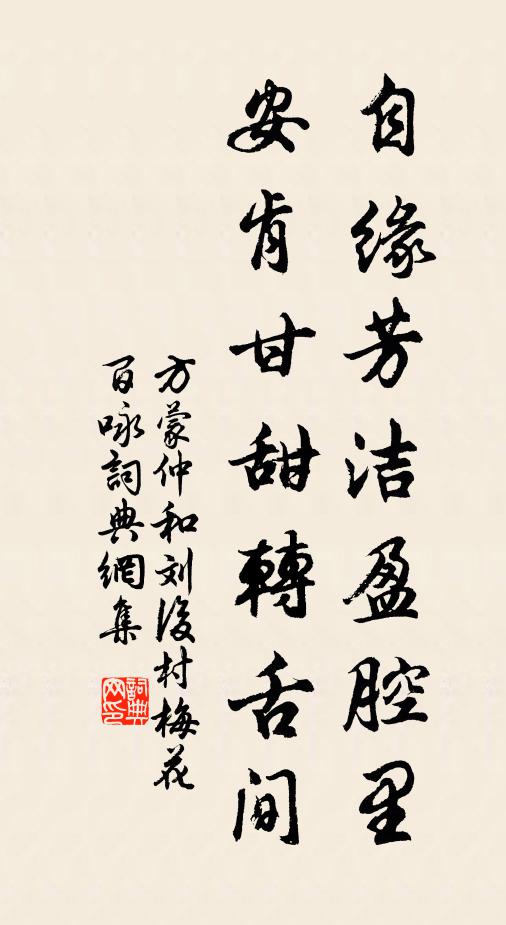 自缘芳洁盈腔里
安肯甘甜轉舌间
方蒙仲和刘後村梅花
百咏詞典網集
詞典
网印